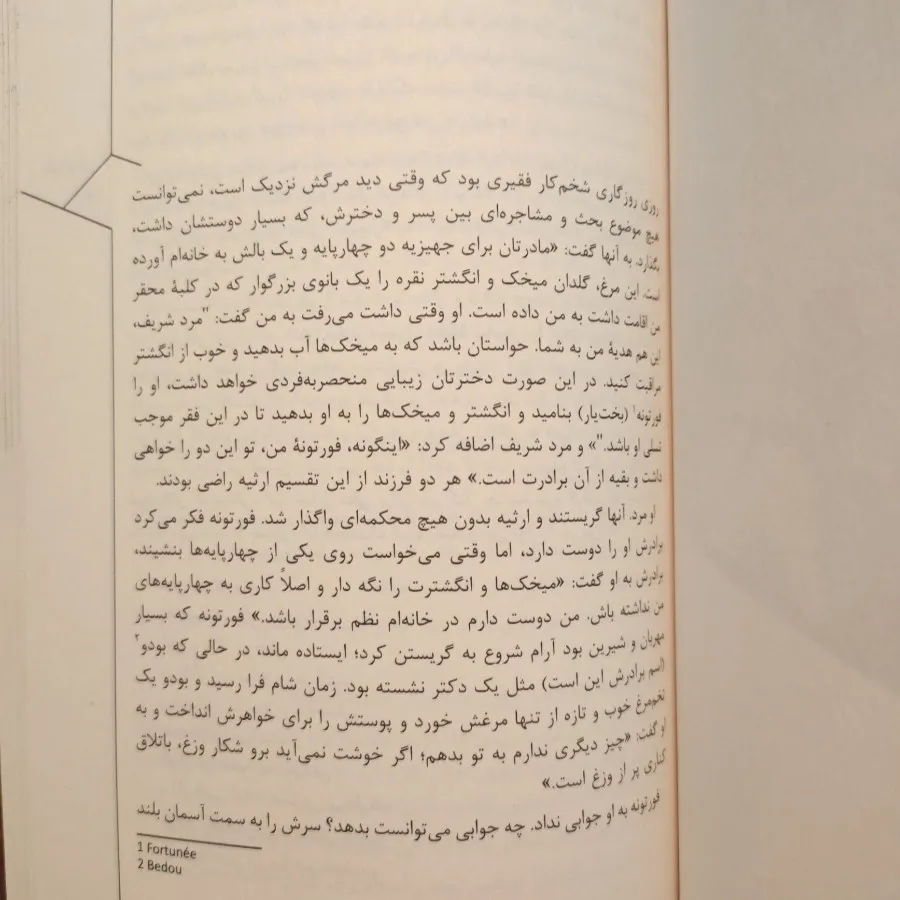 روزی روزگاری شخم‌کار فقیری بود که وقتی دید مرگش نزدیک است، نمی‌توانست
هیچ موضوع بحث و مشاجره‌ای بین پسر و دخترش، که بسیار دوستشان داشت،
بگذارد. به آنها گفت: «مادرتان برای جهیزیه دو چهارپایه و یک بالش به خانه‌ام آورده
است. این مرغ، گلدان میخک و انگشتر نقره را یک بانوی بزرگوار که در کلبهٔ محقر
من اقامت داشت به من داده است. او وقتی داشت می‌رفت به من گفت: "مرد شریف،
این هم هدیهٔ من به شما. حواستان باشد که به میخک‌ها آب بدهید و خوب از انگشتر
مراقبت کنید. در این صورت دخترتان زیبایی منحصربه‌فردی خواهد داشت، او را
فورتونه¹ (بخت‌یار) بنامید و انگشتر و میخک‌ها را به او بدهید تا در این فقر موجب
تسلی او باشد."» و مرد شریف اضافه کرد: «اینگونه، فورتونهٔ من، تو این دو را خواهی
داشت و بقیه از آن برادرت است.» هر دو فرزند از این تقسیم ارثیه راضی بودند.
او مرد. آنها گریستند و ارثیه بدون هیچ محکمه‌ای واگذار شد. فورتونه فکر می‌کرد
برادرش او را دوست دارد، اما وقتی می‌خواست روی یکی از چهارپایه‌ها بنشیند،
برادرش به او گفت: «میخک‌ها و انگشترت را نگه دار و اصلاً کاری به چهارپایه‌های
من نداشته باش. من دوست دارم در خانه‌ام نظم برقرار باشد.» فورتونه که بسیار
مهربان و شیرین بود آرام شروع به گریستن کرد؛ ایستاده ماند، در حالی که بودو²
(اسم برادرش این است) مثل یک دکتر نشسته بود. زمان شام فرا رسید و بودو یک
تخم‌مرغ خوب و تازه از تنها مرغش خورد و پوستش را برای خواهرش انداخت و به
او گفت: «چیز دیگری ندارم به تو بدهم؛ اگر خوشت نمی‌آید برو شکار وزغ، باتلاق
کناری پر از وزغ است.»
فورتونه به او جوابی نداد. چه جوابی می‌توانست بدهد؟ سرش را به سمت آسمان بلند
1 Fortunée
2 Bedou